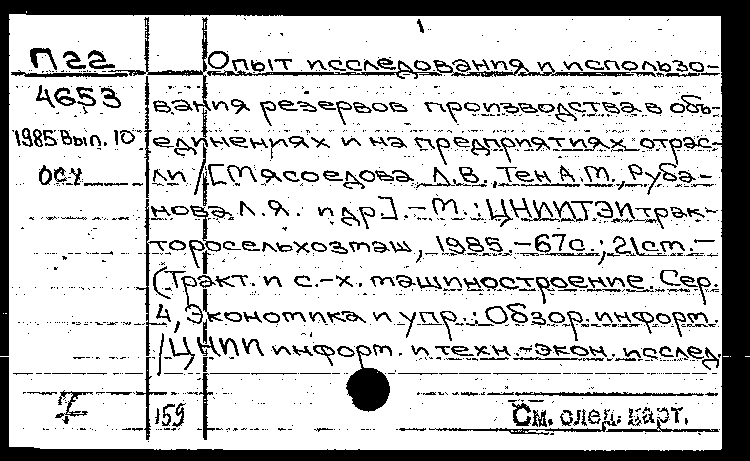 1
П22
4653
1985 Вып. 10
осч
Опыт исследования и использо-
вания резервов производства в объ-
единениях и на предприятиях отрас-
ли / [Мясоедова Л.В., Тен А.М., Руба-
нова Л.Я. и др]. – М. : ЦНИИТЭИтрак-
торосельхозмаш, 1985. – 67с.; 21см. –
(Тракт. и с.-х. машиностроение. Сер.
4, Экономика и упр.: Обзор. информ.
/ ЦНИИ информ. и техн.-экон. исслед
159
См. след. карт.